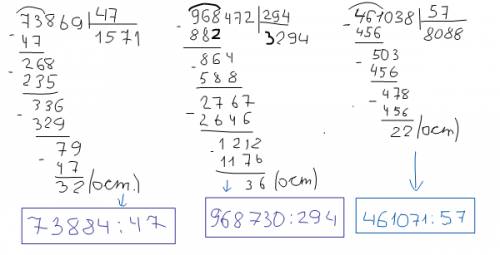 73869 47
47 1571
- 268
235
- 336
329
- 79
47
32 (ост.)
73884:47
- 968472 294
882 3294
- 864
588
- 2767
2646
- 1212
1176
36 (ост)
968730:294
- 461038 57
456 8088
- 503
456
- 478
456
22 (ост)
461071:57